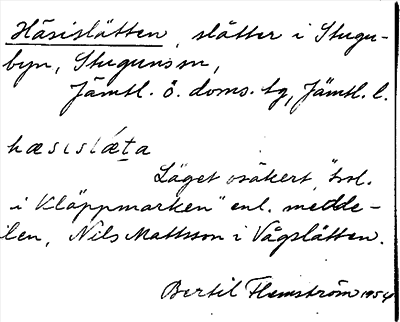 Häsislåtten, slåtter i Stugu-
byn, Stuguns sn,
Jämtl. ö. doms. tg, Jämtl. l.
hæsislǽta
Läget osäkert,
i Kläppmarken" enl. medde-
len, Nils Mattsson i Vågslåtten.
Bertil Flemström 1954